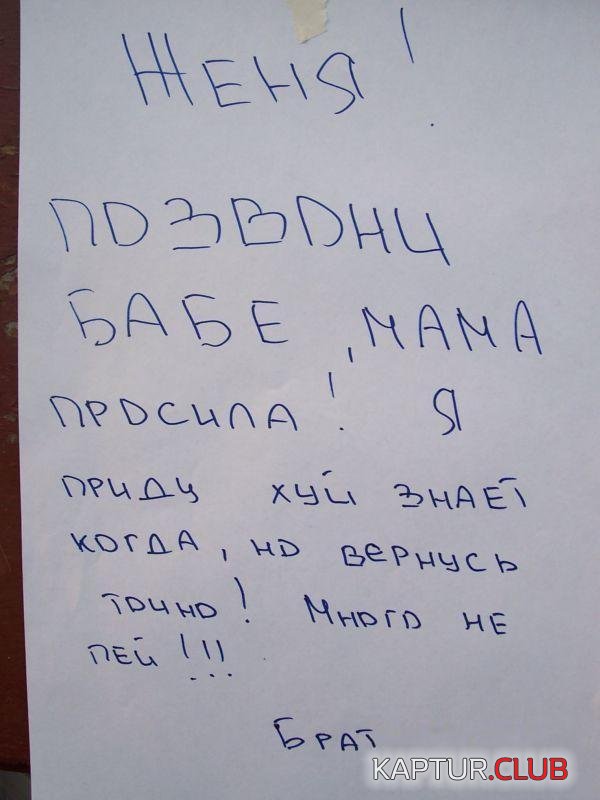 ЖЕНЯ!
ПОЗВОНИ
БАБЕ, МАМА
ПРОСИЛА! Я
ПРИДУ ХУЙ ЗНАЕТ
КОГДА, НО ВЕРНУСЬ
ТОЧНО! МНОГО НЕ
ПЕЙ!!!
БРАТ
KAPTUR.CLUB